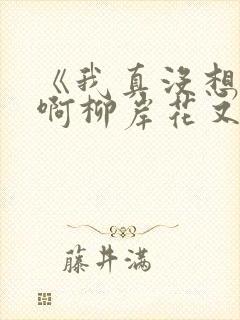 《我真没想
啊柳岸花又
藤井满